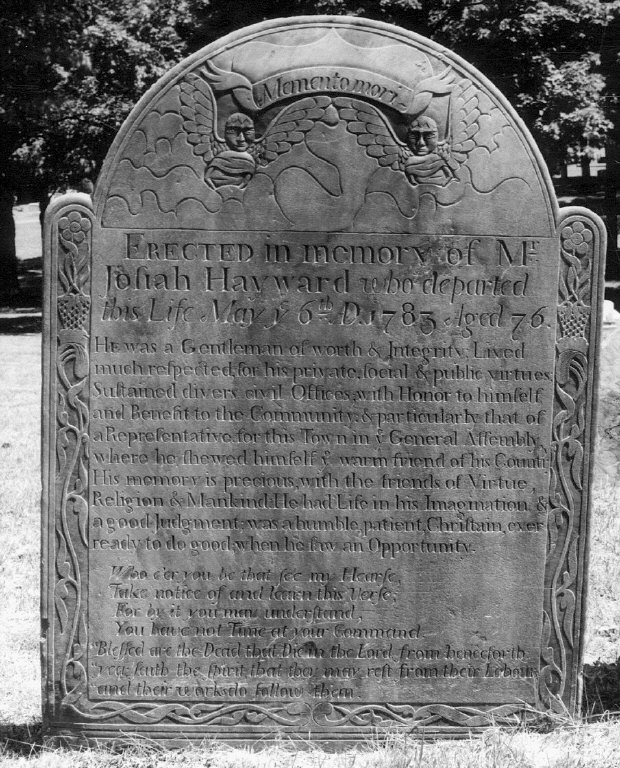 Memento mori
ERECTED in memory of Mr.
Joſiah Hayward who departed
this Life May ye 6th D. 1783 Aged 76.
HE was a Gentleman of worth & Integrity, Lived
much reſpected, for his private, ſocial & public virtues,
Suſtained divers civil Offices, with Honor to himſelf
and Benefit to the Community, & particularly that of
a Repreſentative, for this Town in ye General Aſſembly,
where he ſhewed himſelf ye warm friend of his Countr
His memory is precious, with the friends of Virtue,
Religion & Mankind. He had Life in his Imagination &
a good Judgment, was a humble, patient, Chriſtain, ever
ready to do good, when he ſaw an Opportunity.
Who e'er you be that ſee my Hearſe,
Take notice of and learn this Verſe;
For by it you may underſtand,
You have not Time at your Command.
"Bleſſed are the Dead that Die in the Lord from henceforth
"yea, ſaith the ſpirit that they may reſt from their Labour
"and their works do follow them".